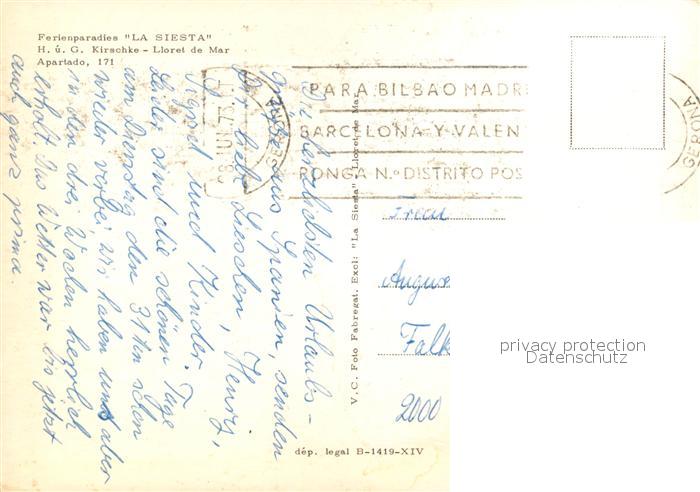 Ferienparadies "LA SIESTA"
H. ú. G. Kirschke - Lloret de Mar
Apartado, 171
Die herzlichsten Urlaubs-
grüsse aus Spanien, senden
Dir liebe Lieschen, Henry,
Sigrid und Kinder.
Leider sind die schönen Tage
am Dienstag den 31ten schon
wieder vorbei, wir haben uns aber
in den drei Wochen herrlich
erholt. Das Wetter war bis jetzt
auch ganz prima.
GERONA
PARA BILBAO MADR
BARCELONA Y VALEN
PONGA N.º DISTRITO POS
GERONA
V.C. Foto Fabregat. Excl: "La Siesta" Lloret de Mar
Frau
Augus
Falk
2000
privacy protection
Datenschutz
dép. legal B-1419-XIV